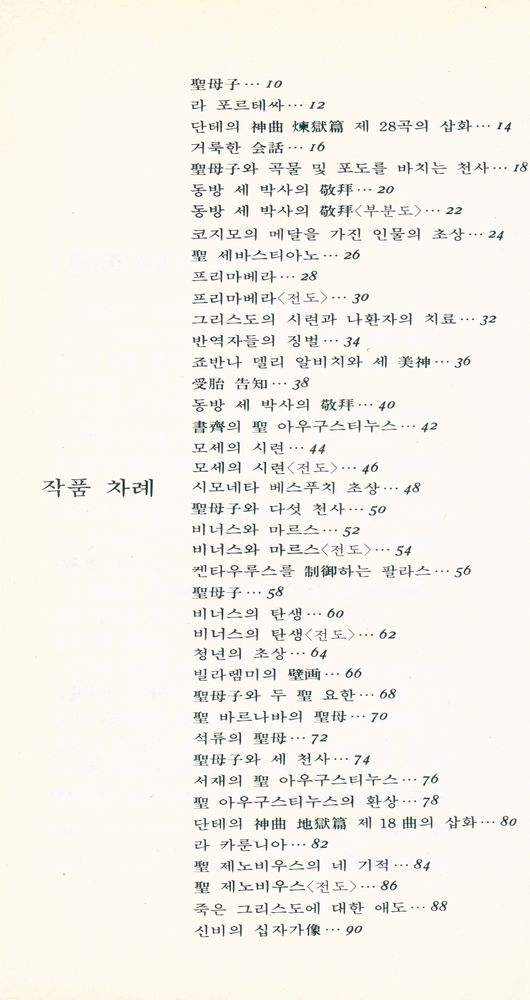 작품 차례
聖母子… 10
라 포르테싸… 12
단테의 神曲 煉獄篇 제 28곡의 삽화… 14
거룩한 会話… 16
聖母子와 곡물 및 포도를 바치는 천사… 18
동방 세 박사의 敬拜… 20
동방 세 박사의 敬拜〈부분도〉… 22
코지모의 메달을 가진 인물의 초상… 24
聖 세바스티아노… 26
프리마베라… 28
프리마베라〈전도〉… 30
그리스도의 시련과 나환자의 치료… 32
반역자들의 징벌… 34
죠반나 델리 알비치와 세 美神… 36
受胎 告知… 38
동방 세 박사의 敬拜… 40
書齊의 聖 아우구스티누스… 42
모세의 시련… 44
모세의 시련〈전도〉… 46
시모네타 베스푸치 초상… 48
聖母子와 다섯 천사… 50
비너스와 마르스… 52
비너스와 마르스〈전도〉… 54
켄타우루스를 制御하는 팔라스… 56
聖母子… 58
비너스의 탄생… 60
비너스의 탄생〈전도〉… 62
청년의 초상… 64
빌라렘미의 壁画… 66
聖母子와 두 聖 요한… 68
聖 바르나바의 聖母… 70
석류의 聖母… 72
聖母子와 세 천사… 74
서재의 聖 아우구스티누스… 76
聖 아우구스티누스의 환상… 78
단테의 神曲 地獄篇 제 18 曲의 삽화… 80
라 카룬니아… 82
聖 제노비우스의 네 기적… 84
聖 제노비우스〈전도〉… 86
죽은 그리스도에 대한 애도… 88
신비의 십자가像… 90